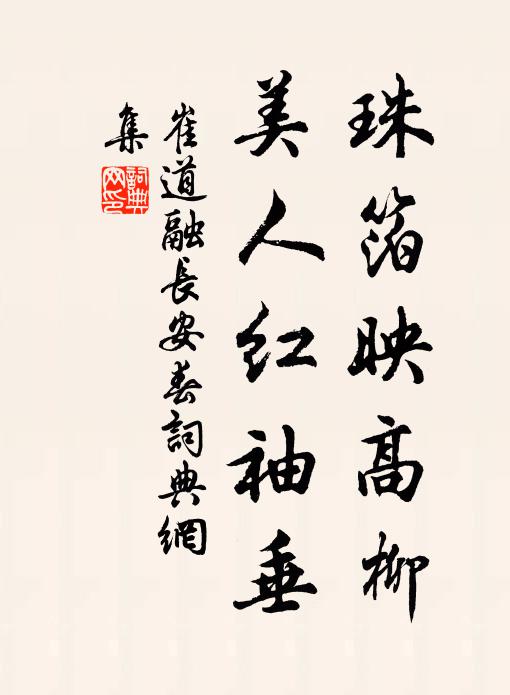 珠箔映高柳
美人红袖垂
崔道融長安春詞典網
集
詞典
网印